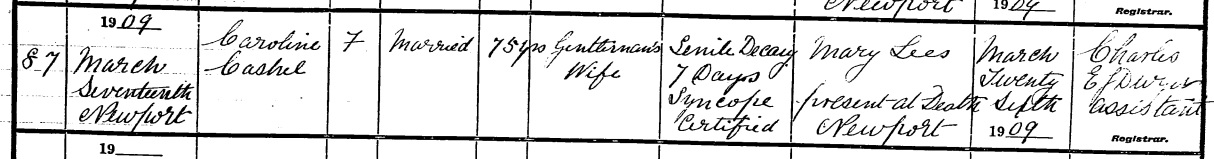 Newport 1909 Registrar.
1909
87 March Seventeenth Newport
Caroline Cashel
F
Married
75 yrs
Gentleman's Wife
Senile Decay 7 Days Syncope Certified
Mary Lees present at Death Newport
March Twenty Sixth 1909
Charles assistant Registrar.
19